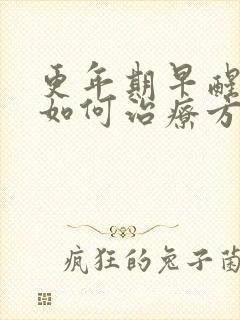 更年期早醒
如何治疗方
疯狂的兔子菌